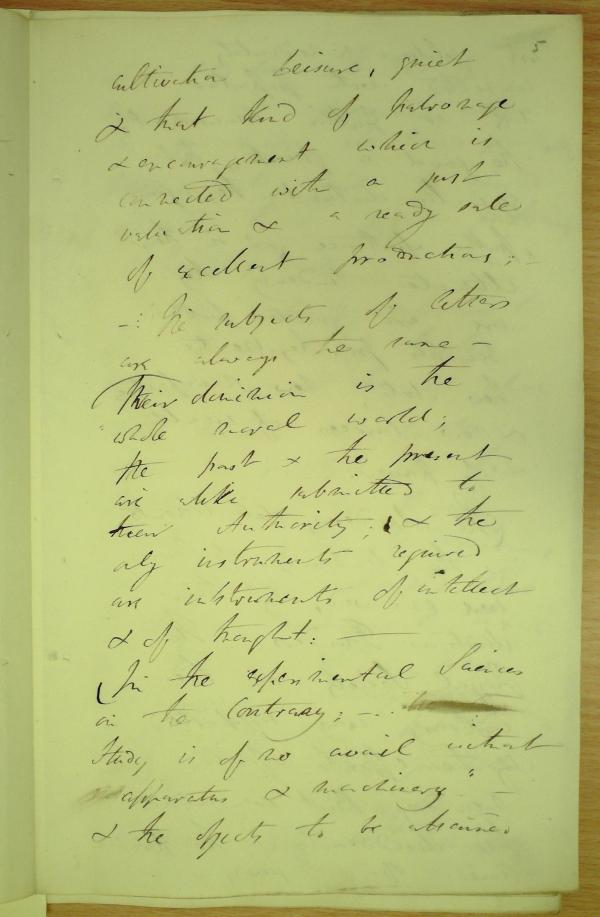 5
cultivation leisure, quiet
& that kind of patronage
& encouragement which is
connected with a just
valuation & a ready sale
of excellent productions; -
-: The subjects of letters
are always the same -
Their dominion is the
whole moral world;
the past & the present
are alike submitted to
their Authority; & the
only instruments required
are instruments of intellect
& of thought: -
In the experimental Sciences
on the Contrary; -
Study is of no avail without
apparatus & machinery" -
& the objects to be obtained